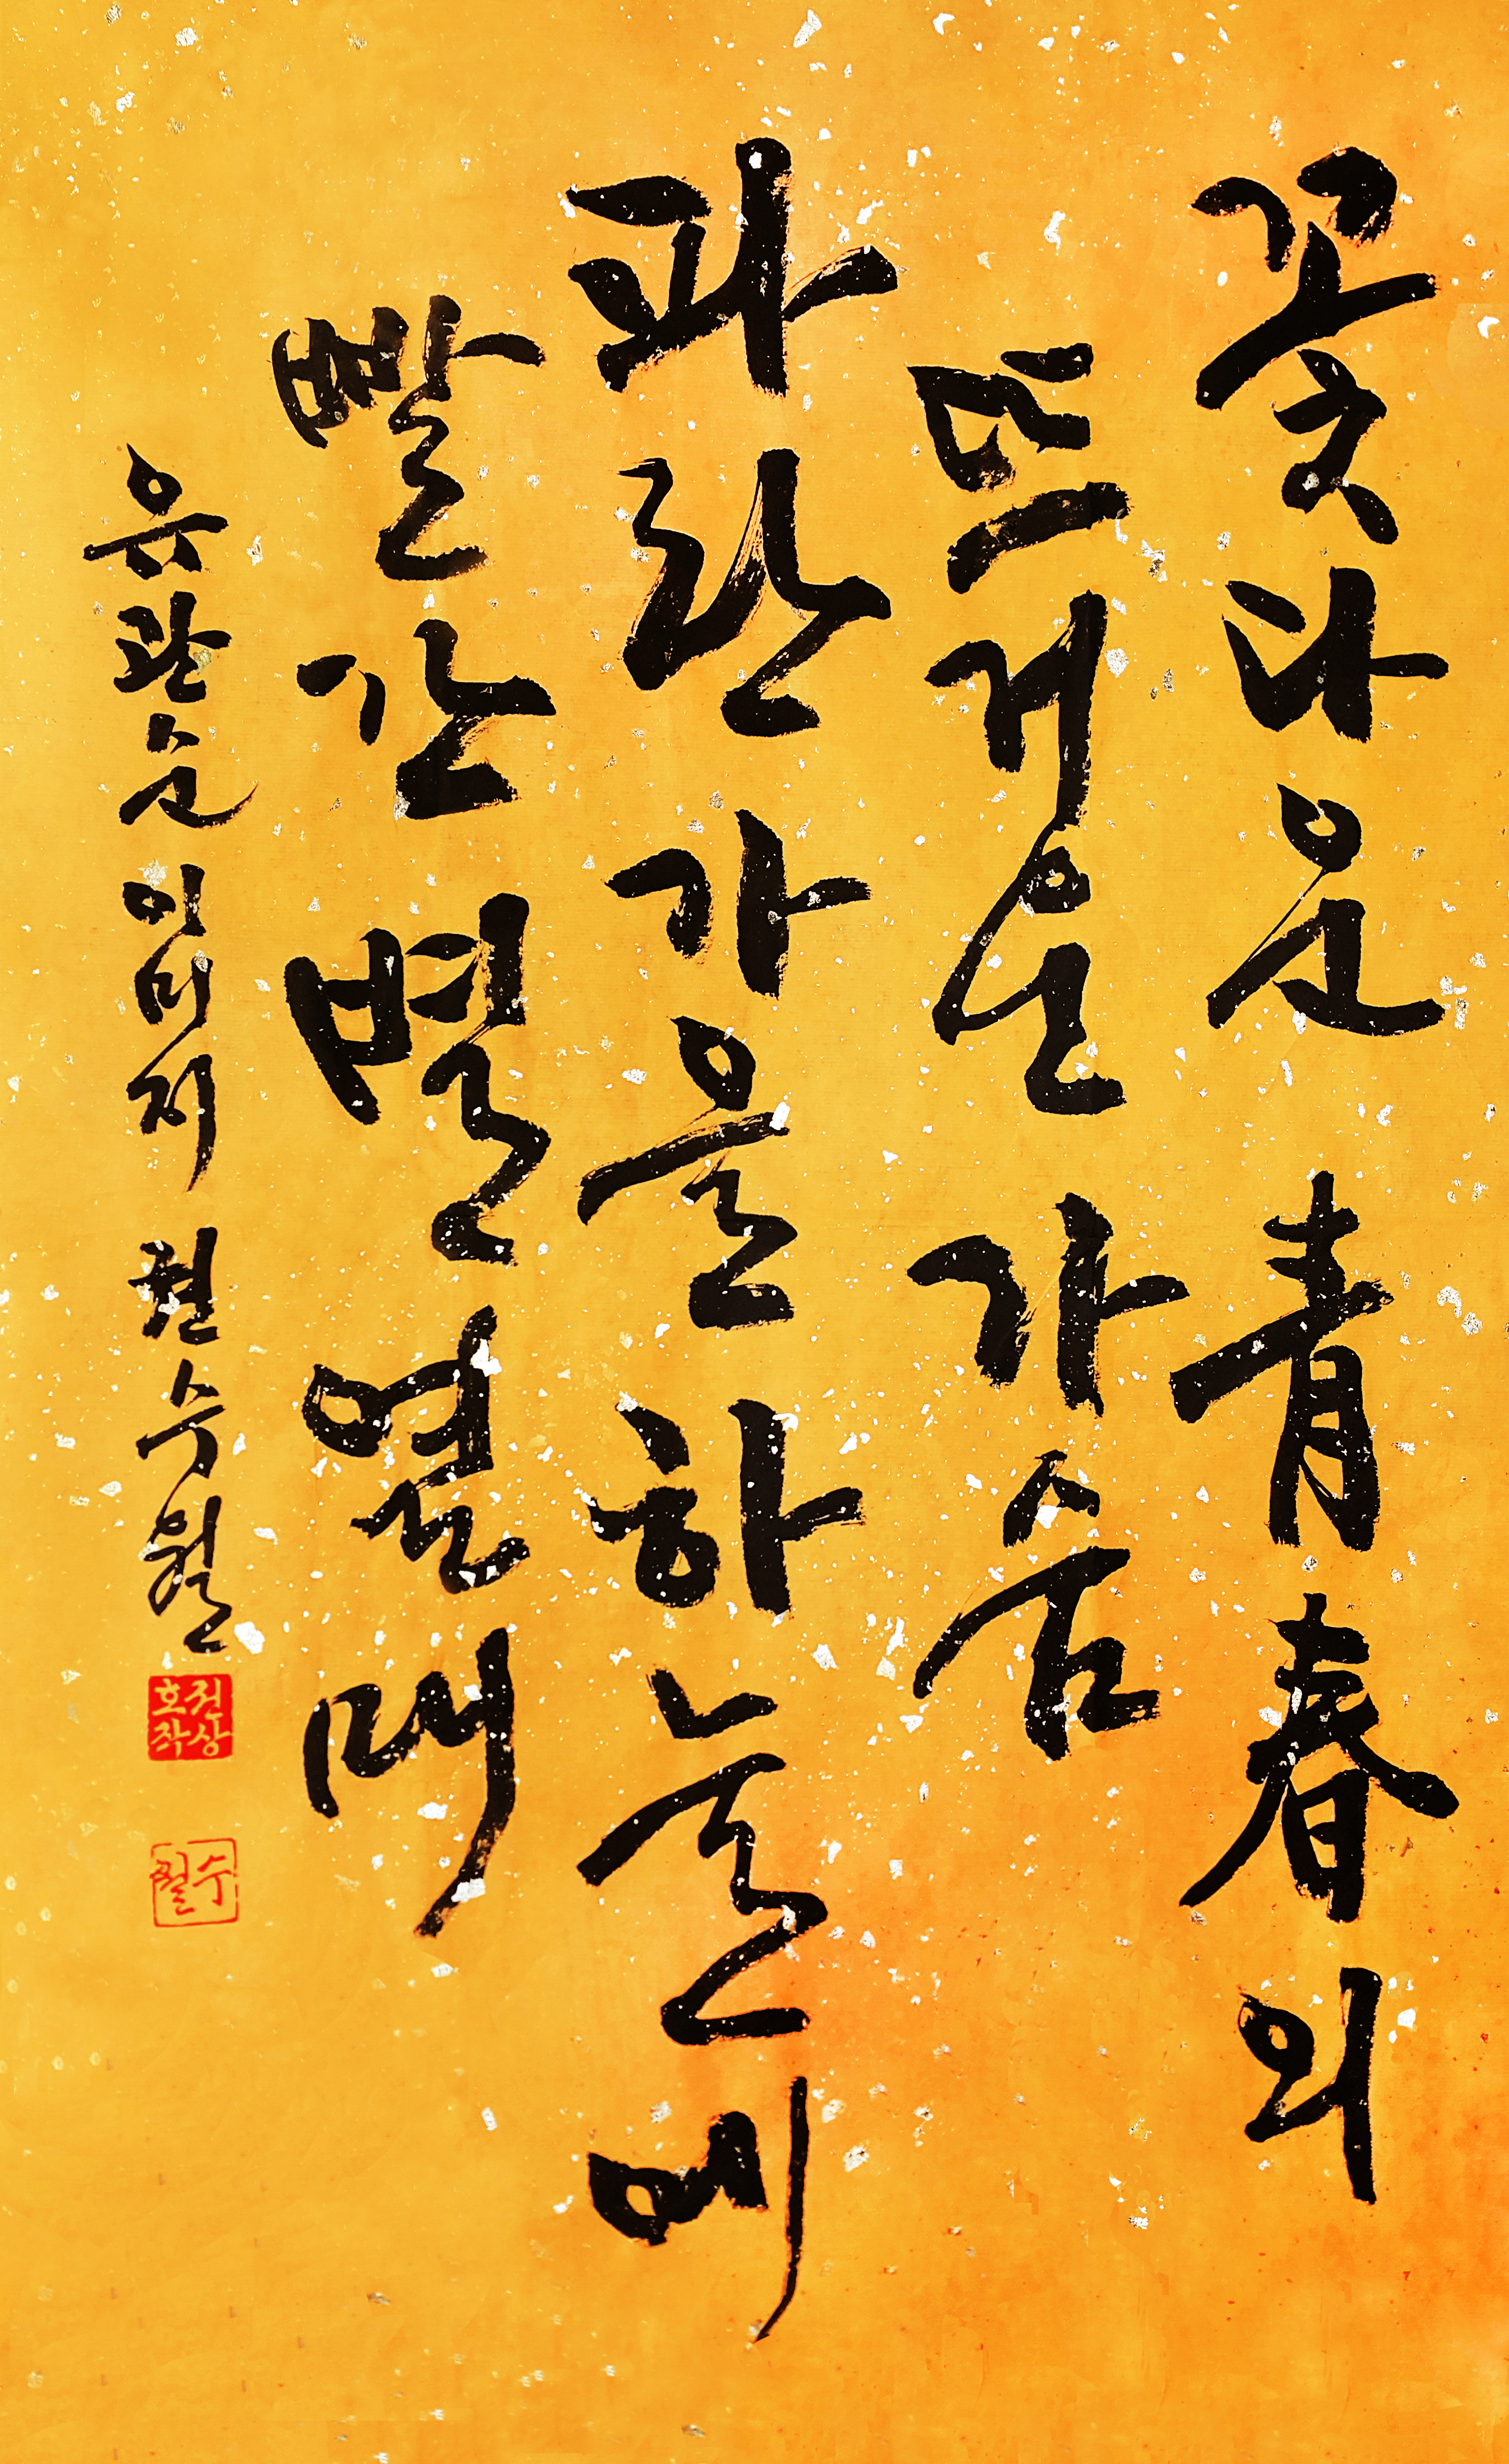 꽃다운 青春의
뜨거운 가슴
파란 가을 하늘에
빨간 별 열매
유관순 이미지 권수월
권상호작
수월